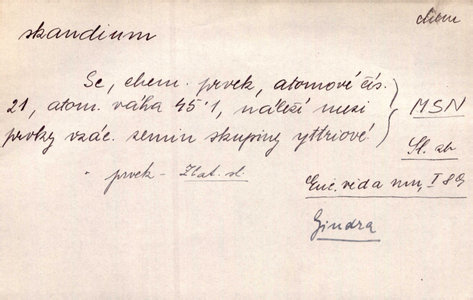 chem
skandium
Sc, chem. prvek, atomové čís.
21, atom. váha 45·1, náleží mezi
prvky vzác. zemin skupiny yttriové.
MSN
Sl. ab
prvek - Zlat. sl.
Enc. věda I 89
Gindra